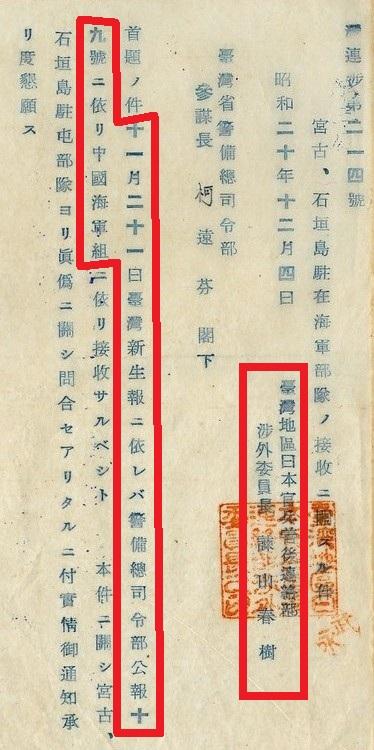 灣連涉第二一四號
宮古、石垣島駐在海軍部隊ノ接收ニ關スル件
昭和二十年十二月四日
臺灣地區日本官兵善後連絡部
涉外委員長 諫山春樹
臺灣省警備總司令部
參謀長 柯遠芬 閣下
首題ノ件十一月二十一日臺灣新生報ニ依レバ警備總司令部公報十
九號ニ依リ中國海軍組ニ依リ接收サルベシト 本件ニ關シ宮古、
石垣島駐屯部隊ヨリ眞僞ニ關シ問合セアリタルニ付實情御通知承
リ度懇願ス